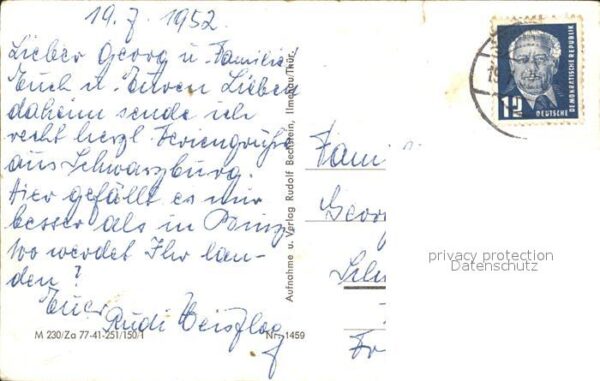 19.7.1952
Lieber Georg u. Familie!
Euch u. Euren Lieben
daheim sende ich
recht herzl. Feriengrüße
aus Schwarzburg.
Hier gefällt es mir
besser als in Binz.
Wo werdet Ihr lan-
den?
Euer
Rudi
M 230/Za 77-41-251/150/1
Nr. 1459
Aufnahme u. Verlag Rudolf Bechstein, Ilmenau/Thür.
Fami
Georg
Schu
Fr
12
DEUTSCHE
DEMOKRATISCHE REPUBLIK
privacy protection
Datenschutz